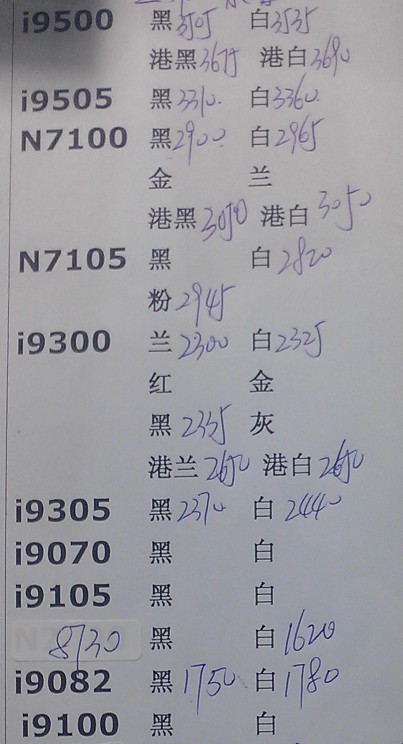 i9500 黑3505 白3535
港黑3675 港白3690
i9505 黑3310 白3360
N7100 黑2900 白2965
金 兰
港黑3050 港白3050
N7105 黑 白2820
粉2945
i9300 兰2300 白2325
红 金
黑2335 灰
港兰2650 港白2650
i9305 黑2370 白2440
i9070 黑 白
i9105 黑 白
8730 黑 白1620
i9082 黑1750 白1780
i9100 黑 白